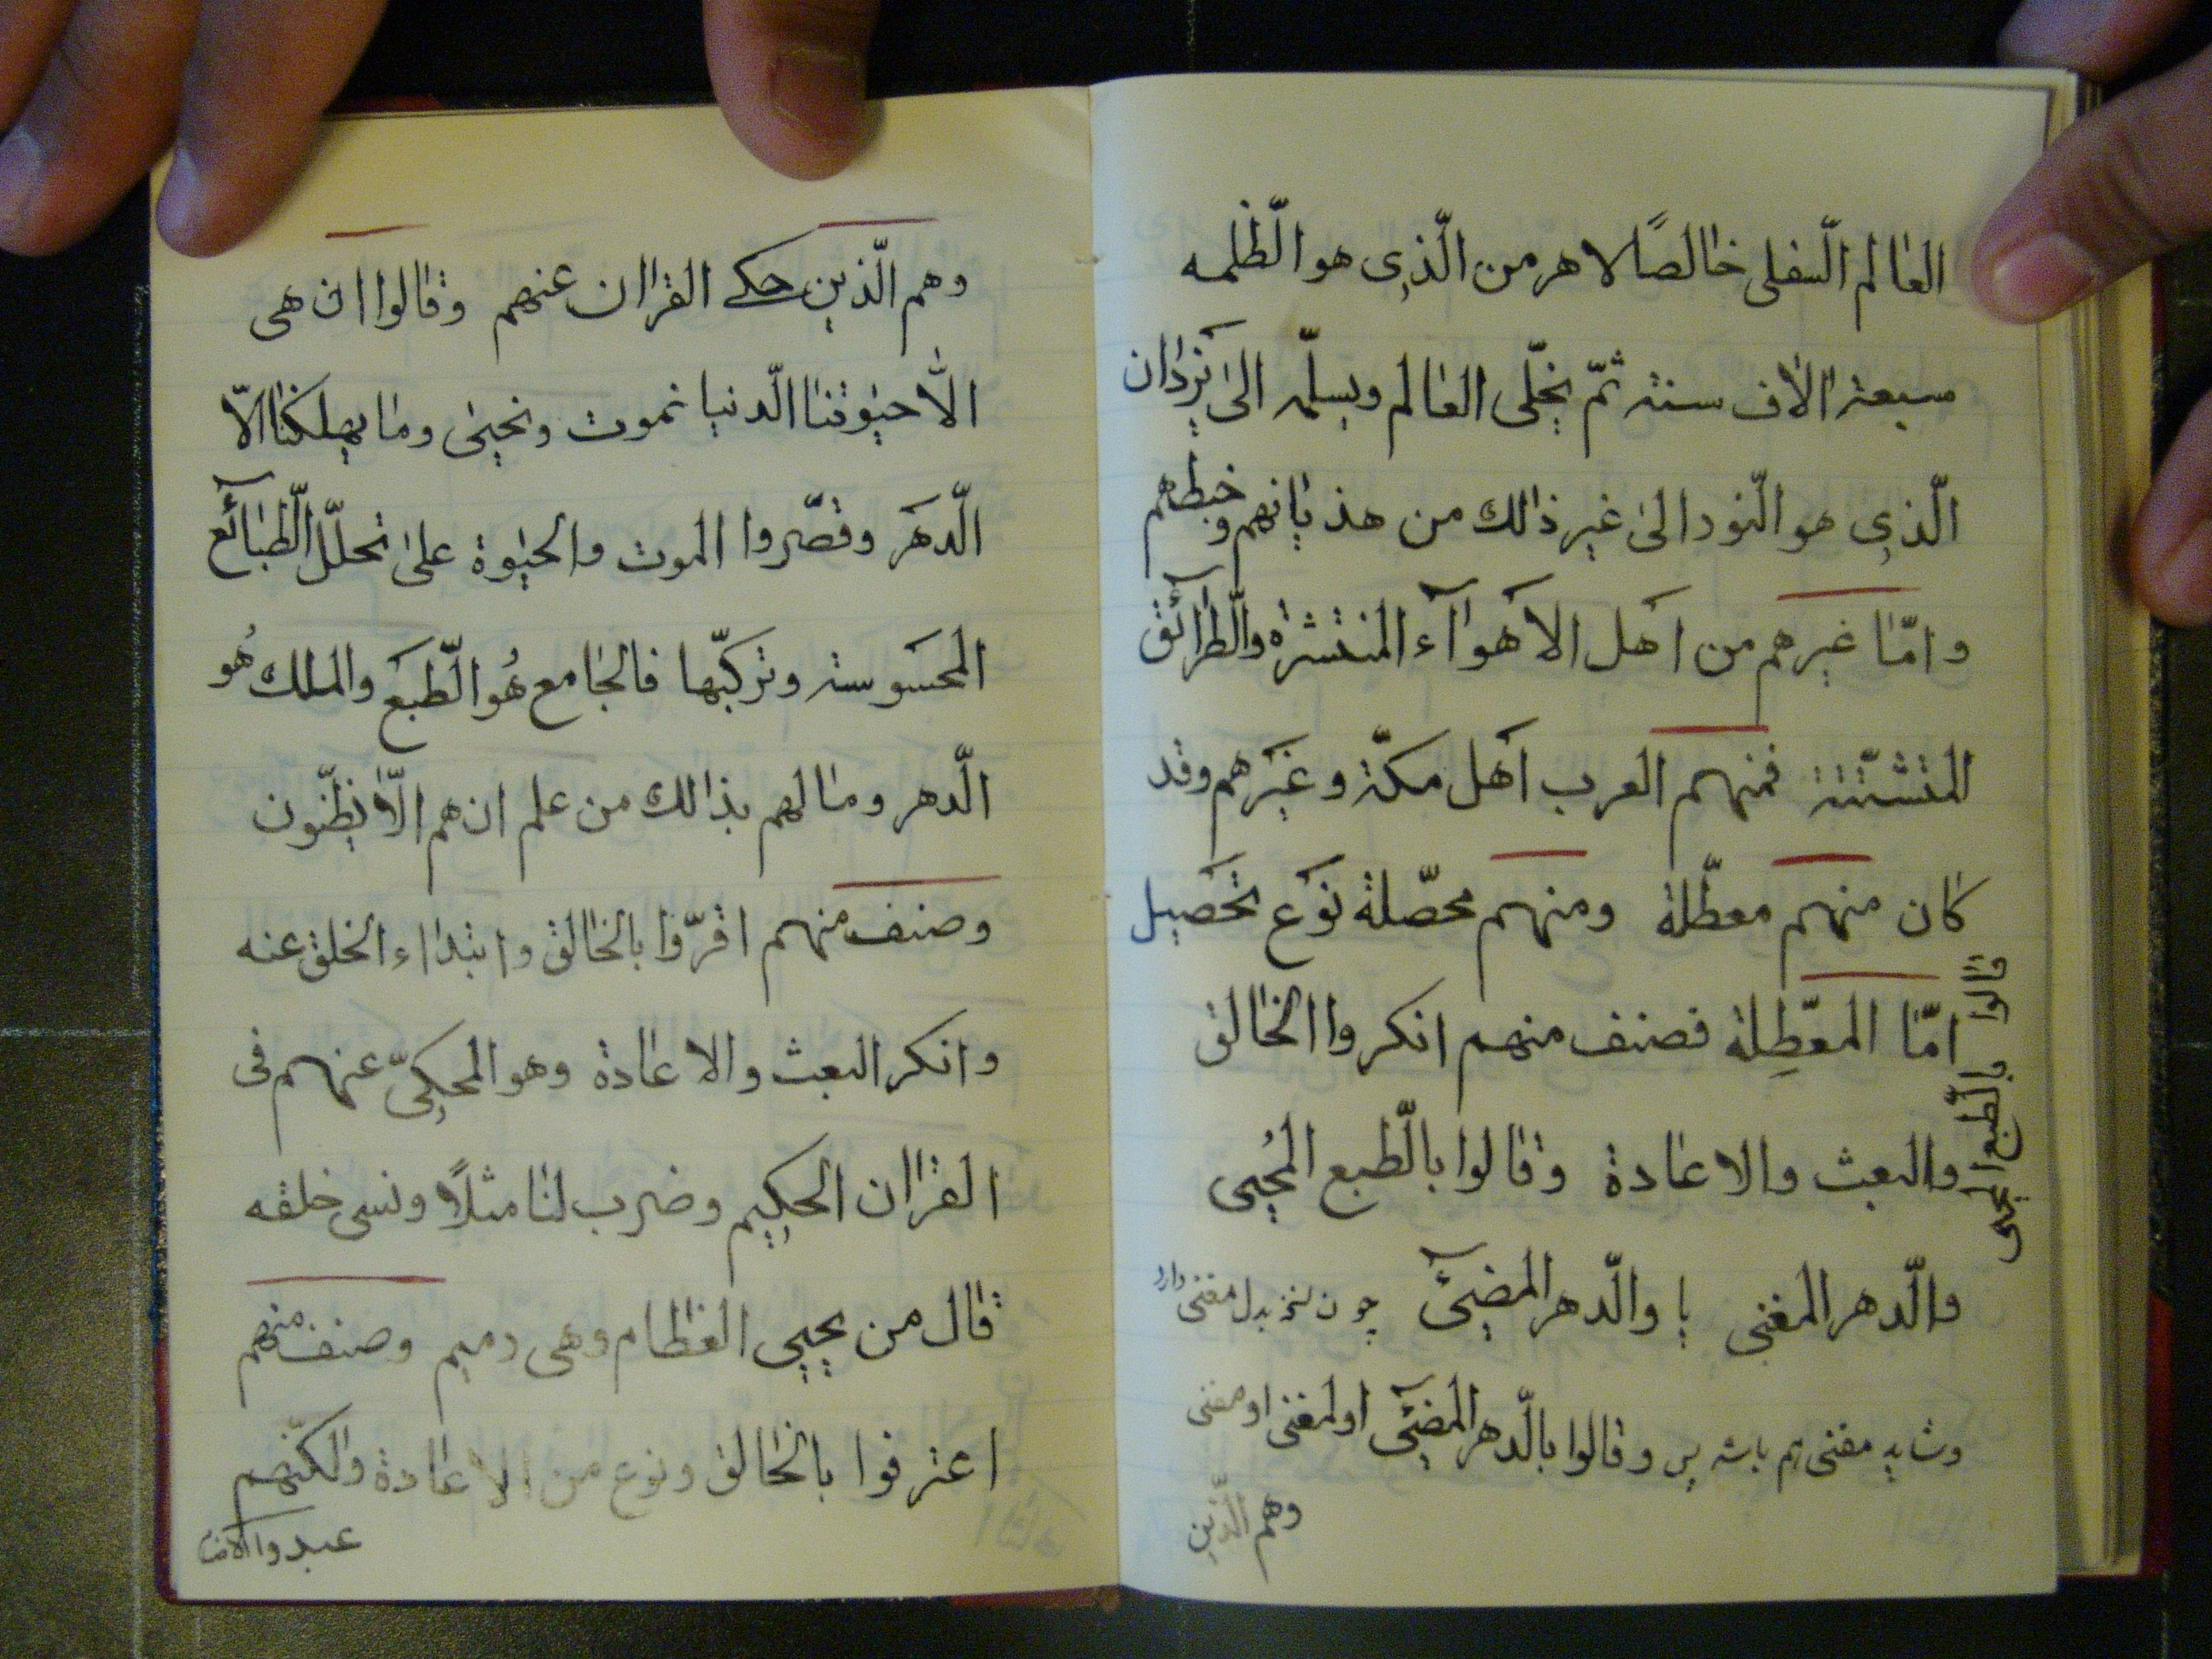 العالم السّفلی خالصًا لاهرمن الّذی هو الظّلمه
سبعة الاف سنته ثمّ یخلّی العالم ویسلّمه الیٰ یزدان
الّذی هو النّور الیٰ غیر ذالك من هذیانهم وخبطهم
وامّا غیرهم من اهل الاهوآء المنتشرة والطّرآئق
المتشتّتة فمنهم العرب اهل مکّة وغیرهم وقد
کان منهم معطّلة ومنهم محصّلة نوع تحصیل
امّا المعطِّلة فصنف منهم انکروا الخالق
والبعث والاعادة وقالوا بالطّبع المُحیی
قالوا بالطّبع المحیی
والدّهر المفنی یا والدّهر المضیئی چون بدل مفنی دارد
وشاید مفنی هم باشد پس وقالوا بالدّهر المضیئی اولمفنی او مفنی
وهم الّذین
وهم الّذین حکے القران عنهم وقالوا ان هی
الّا حیٰوتنا الدّنیا نموت ونحییٰ وما یهلکنا الّا
الدّهر وقصّروا الموت والحیٰوة علیٰ تحلّل الطّبآئع
المحسوسته وترکبّها فالجامع هُو الطّبع والملك هُو
الدّهر وما لهم بذالك من علم ان هم الّا یظنّون
وصنف منهم اقرّوا بالخالق وابتداء الخلق عنه
وانکر البعث والاعادة وهو المحکیّ عنهم فی
القران الحکیم وضرب لنا مثلًا ونسی خلقه
قال من یحیی العظام وهی رمیم وصنف منهم
اعترفوا بالخالق ونوع من الاعادة ولکنّهم
عبدوا الاصنا